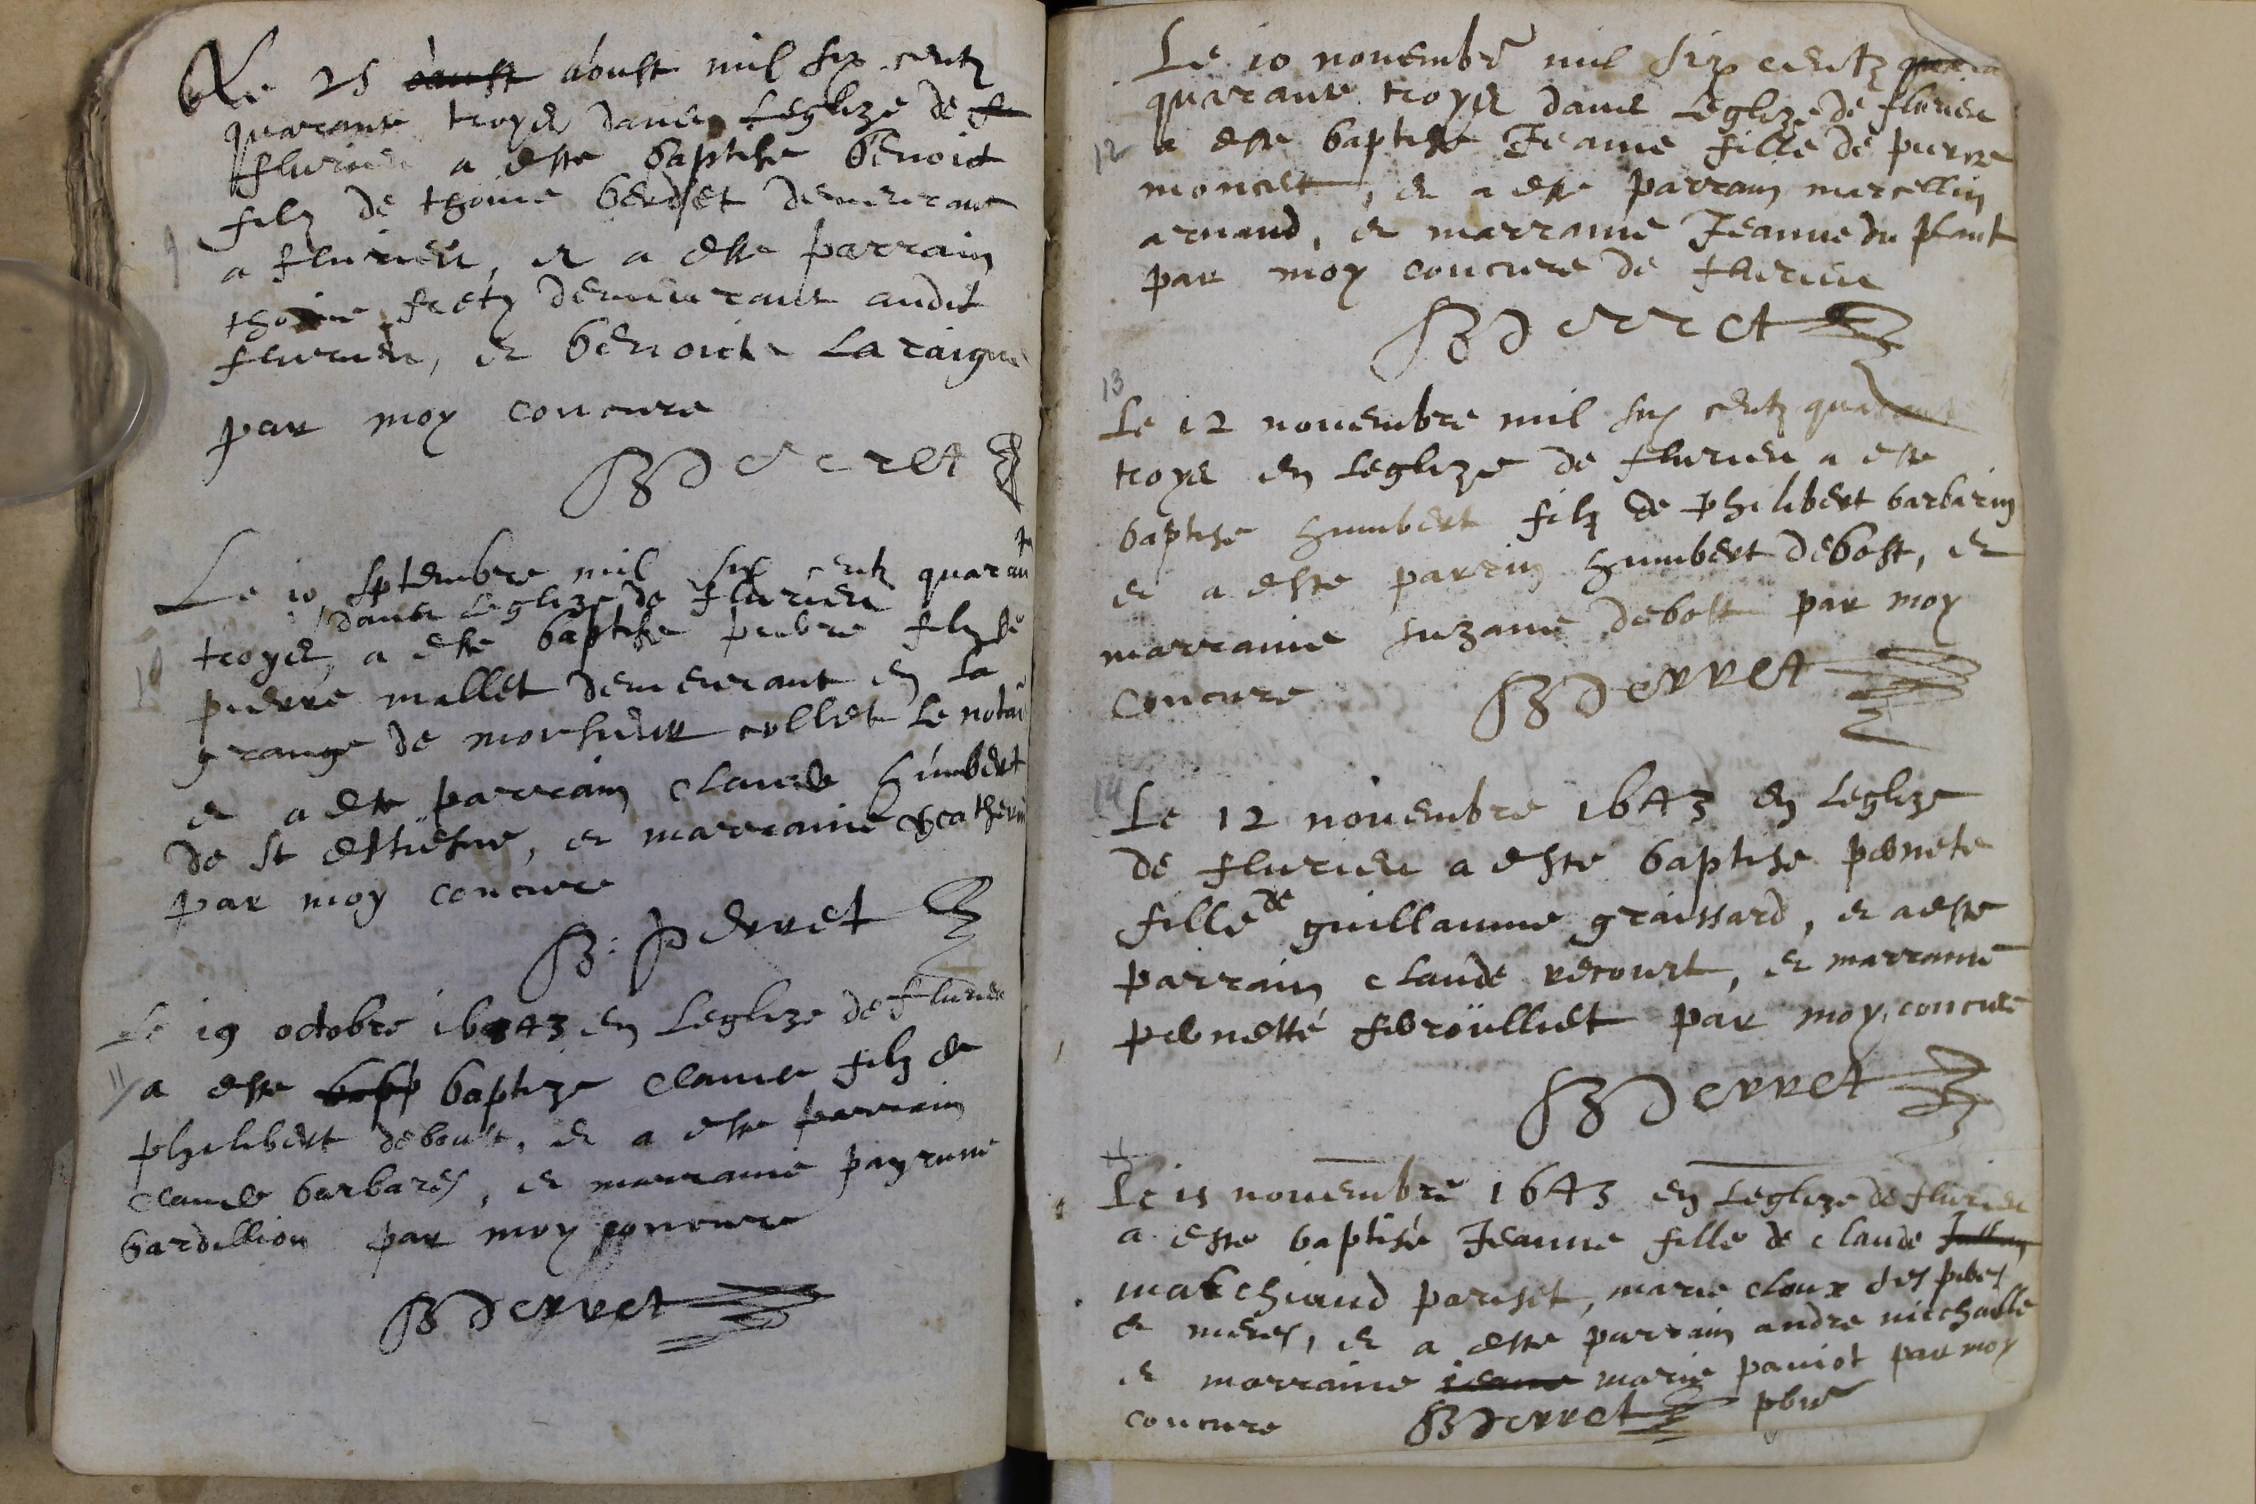 Le 25 aoust mil six centz
quarante troys dans Leglize de
flurieu a este baptise benoict
filz de thoine berdset demeurant
a flurieu, et a este parrain
thoine frety demeurant audit
flurieu, et benoicte La raigne
par moy concure
BPerret
Le 10 Septembre mil six centz quaran
te
dans Leglize de flurieu
troys, a este baptise pierre filz de
pierre mallet demeurant en La
grange de monsieur collet Le notai
et a este parrain claude humbert
de st estiesne, et marraine catherin
par moy concure
B: Perret
11
Le 19 octobre 1643 en Leglize de flurieu
a este baptize claude filz de
philibert deboust, et a este parrain
claude barbares, et marraine payrune
bardillion par moy concure
BPerret
Le 10 novembre mil six centz
quarante troys dans Leglize de flurieu
12
a este baptise Jeanne fille de pierre
moncet, et a este parrain marcellin
arnaud, et marraine Jeanne du plant
par moy concure de flurieu
BPerret
13
Le 12 novembre mil six centz quarante
troys en Leglize de flurieu a este
baptise humbert filz de philibert barbarin
et a este parrin humbert debost, et
marraine suzanne debost par moy
concure BPerret
14
Le 12 novembre 1643 en Leglize
de flurieu a este baptise pernete
fille de guillaume graissard, et a este
parrain claude recourt, et marraine
pernette feroulliet par moy, concure
BPerret
Le 15 novembre 1643 en Leglize de flurieu
a este baptisé Jeanne fille de claude
marchiand pariset, marie cloux ses peres
et meres, et a este parrain andre michaille
et marraine marie paviot par moy
concure BPerret pbre